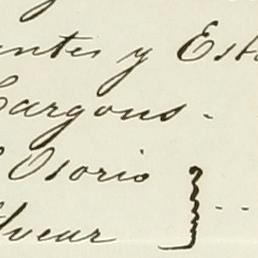 ntes y Est
Cargons.
Osorio
lvear